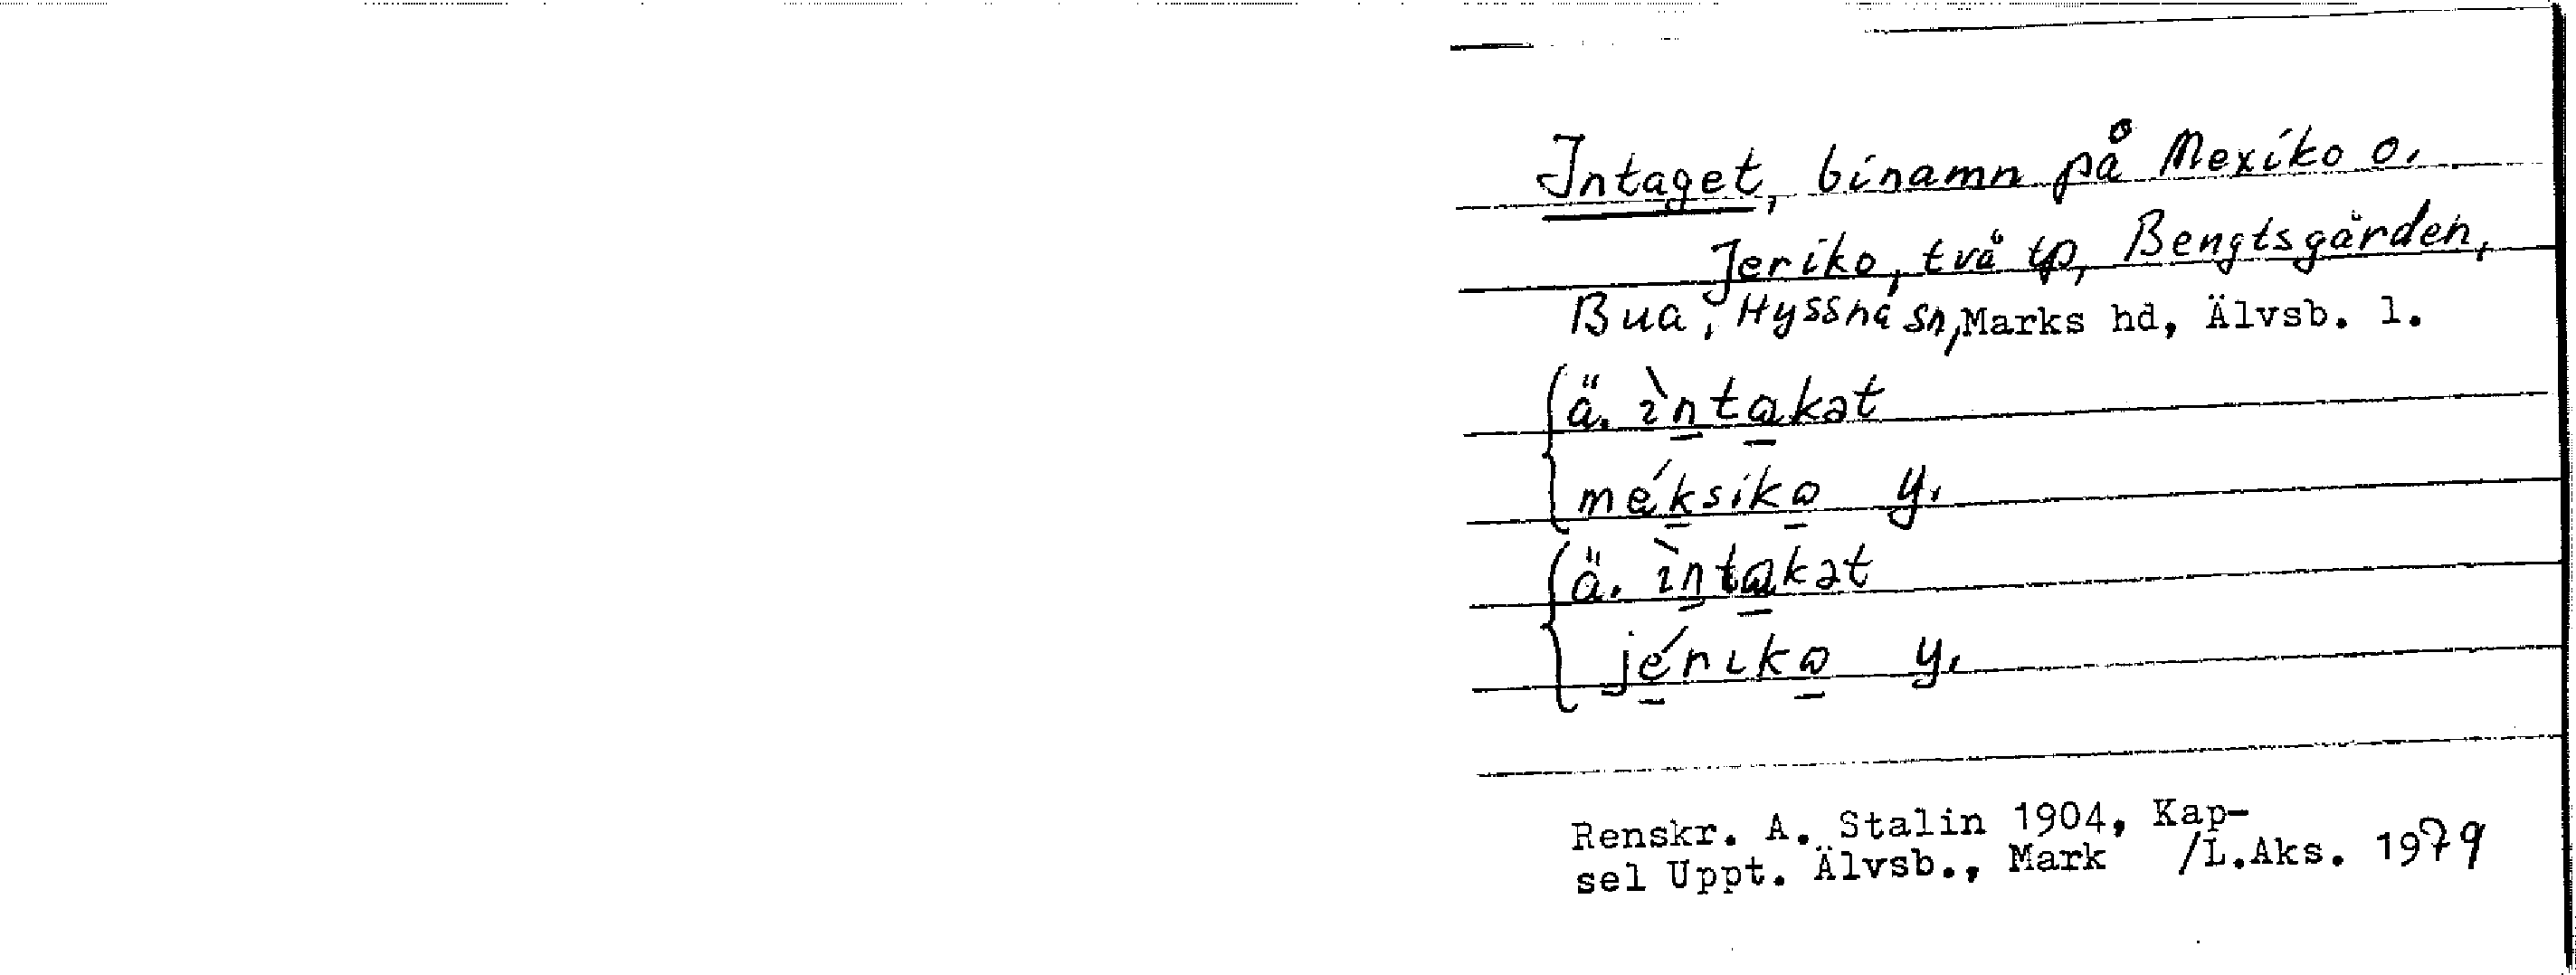 Intaget, binamn på Mexiko o.
Jeriko, två tp, Bengtsgården,
Bua, Hyssna sn, Marks hd, Älvsb. l.
ä. ìntakət
méksiko y.
ä. ìntakət
jériko y.
Renskr. A. Stalin 1904, Kap-
sel Uppt. Älvsb., Mark /L.Aks. 1979